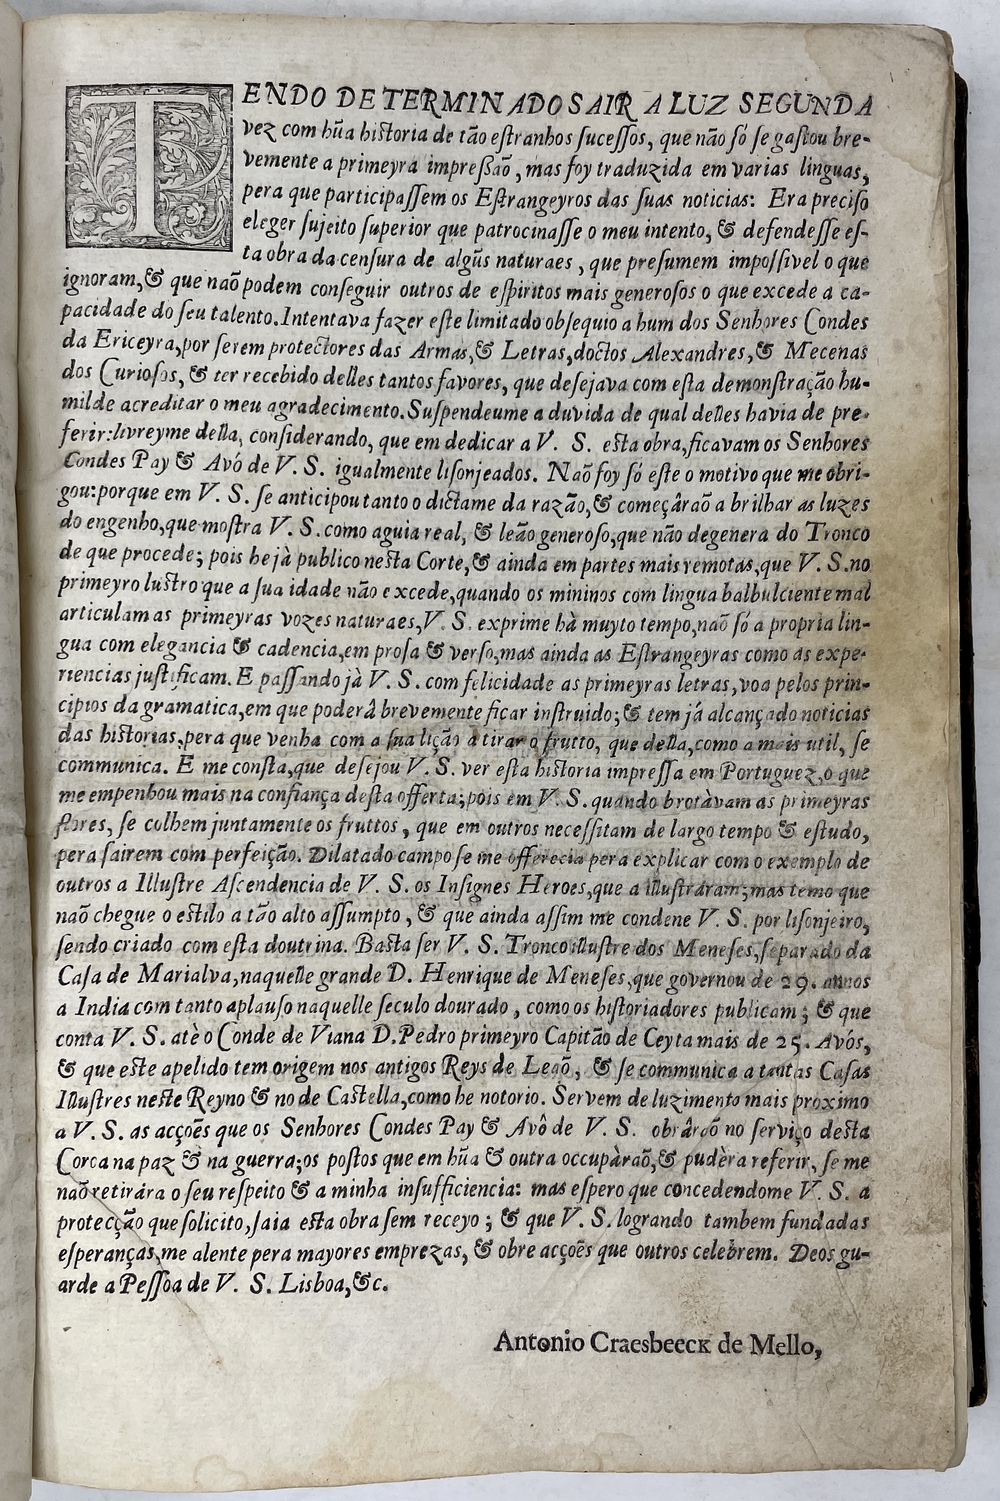 TENDO DETERMINADO SAIR A LUZ SEGUNDA
vez com hũa historia de tão estranhos sucessos, que não só se gastou bre-
vemente a primeyra impressaõ, mas foy traduzida em varias linguas,
pera que participassem os Estrangeyros das suas noticias: Era preciso
eleger sujeito superior que patrocinasse o meu intento, & defendesse es-
ta obra da censura de algũs naturaes, que presumem impossivel o que
ignoram, & que naõ podem conseguir outros de espiritos mais generosos o que excede a ca-
pacidade do seu talento. Intentava fazer este limitado obsequio a hum dos Senhores Condes
da Ericeyra, por serem protectores das Armas, & Letras, doctos Alexandres, & Mecenas
dos Curiosos, & ter recebido delles tantos favores, que desejava com esta demonstração hu-
milde acreditar o meu agradecimento. Suspendeume a duvida de qual delles havia de pre-
ferir: livreyme della, considerando, que em dedicar a V. S. esta obra, ficavam os Senhores
Condes Pay & Avó de V. S. igualmente lisonjeados. Naõ foy só este o motivo que me obri-
gou: porque em V. S. se anticipou tanto o dictame da razão, & começâraõ a brilhar as luzes
do engenho, que mostra V. S. como aguia real, & leão generoso, que não degenera do Tronco
de que procede; pois he jà publico nesta Corte, & ainda em partes mais remotas, que V. S. no
primeyro lustro que a sua idade não excede, quando os mininos com lingua balbulciente mal
articulam as primeyras vozes naturaes, V. S. exprime hà muyto tempo, naõ só a propria lin-
gua com elegancia & cadencia, em prosa & verso, mas ainda as Estrangeyras como as expe-
riencias justificam. E passando jà V. S. com felicidade as primeyras letras, voa pelos prin-
cipios da gramatica, em que poderâ brevemente ficar instruido; & tem já alcançado noticias
das historias, pera que venha com a sua lição a tirar o frutto, que della, como a mais util, se
communica. E me consta, que desejou V. S. ver esta historia impressa em Portuguez, o que
me empenhou mais na confiança desta offerta; pois em V. S. quando brotàvam as primeyras
flores, se colhem juntamente os fruttos, que em outros necessitam de largo tempo & estudo,
pera sairem com perfeição. Dilatado campo se me offerecia pera explicar com o exemplo de
outros a Illustre Ascendencia de V. S. os Insignes Heroes, que a illustráram; mas temo que
naõ chegue o estilo a tão alto assumpto, & que ainda assim me condene V. S. por lisonjeiro,
sendo criado com esta doutrina. Basta ser V. S. Tronco illustre dos Meneses, separado da
Casa de Marialva, naquelle grande D. Henrique de Meneses, que governou de 29. annos
a India com tanto aplauso naquelle seculo dourado, como os historiadores publicam; & que
conta V. S. atè o Conde de Viana D. Pedro primeyro Capitão de Ceyta mais de 25. Avós,
& que este apelido tem origem nos antigos Reys de Leaõ, & se communica a tantas Casas
Illustres neste Reyno & no de Castella, como he notorio. Servem de luzimento mais proximo
a V. S. as acções que os Senhores Condes Pay & Avô de V. S. obrâraõ no serviço desta
Coroa na paz & na guerra; os postos que em hũa & outra occupàraõ, & pudèra referir, se me
naõ retirára o seu respeito & a minha insufficiencia: mas espero que concedendome V. S. a
protecção que solicito, saia esta obra sem receyo; & que V. S. logrando tambem fundadas
esperanças, me alente pera mayores emprezas, & obre acções que outros celebrem. Deos gu-
arde a Pessoa de V. S. Lisboa, &c.
Antonio Craesbeeck de Mello,